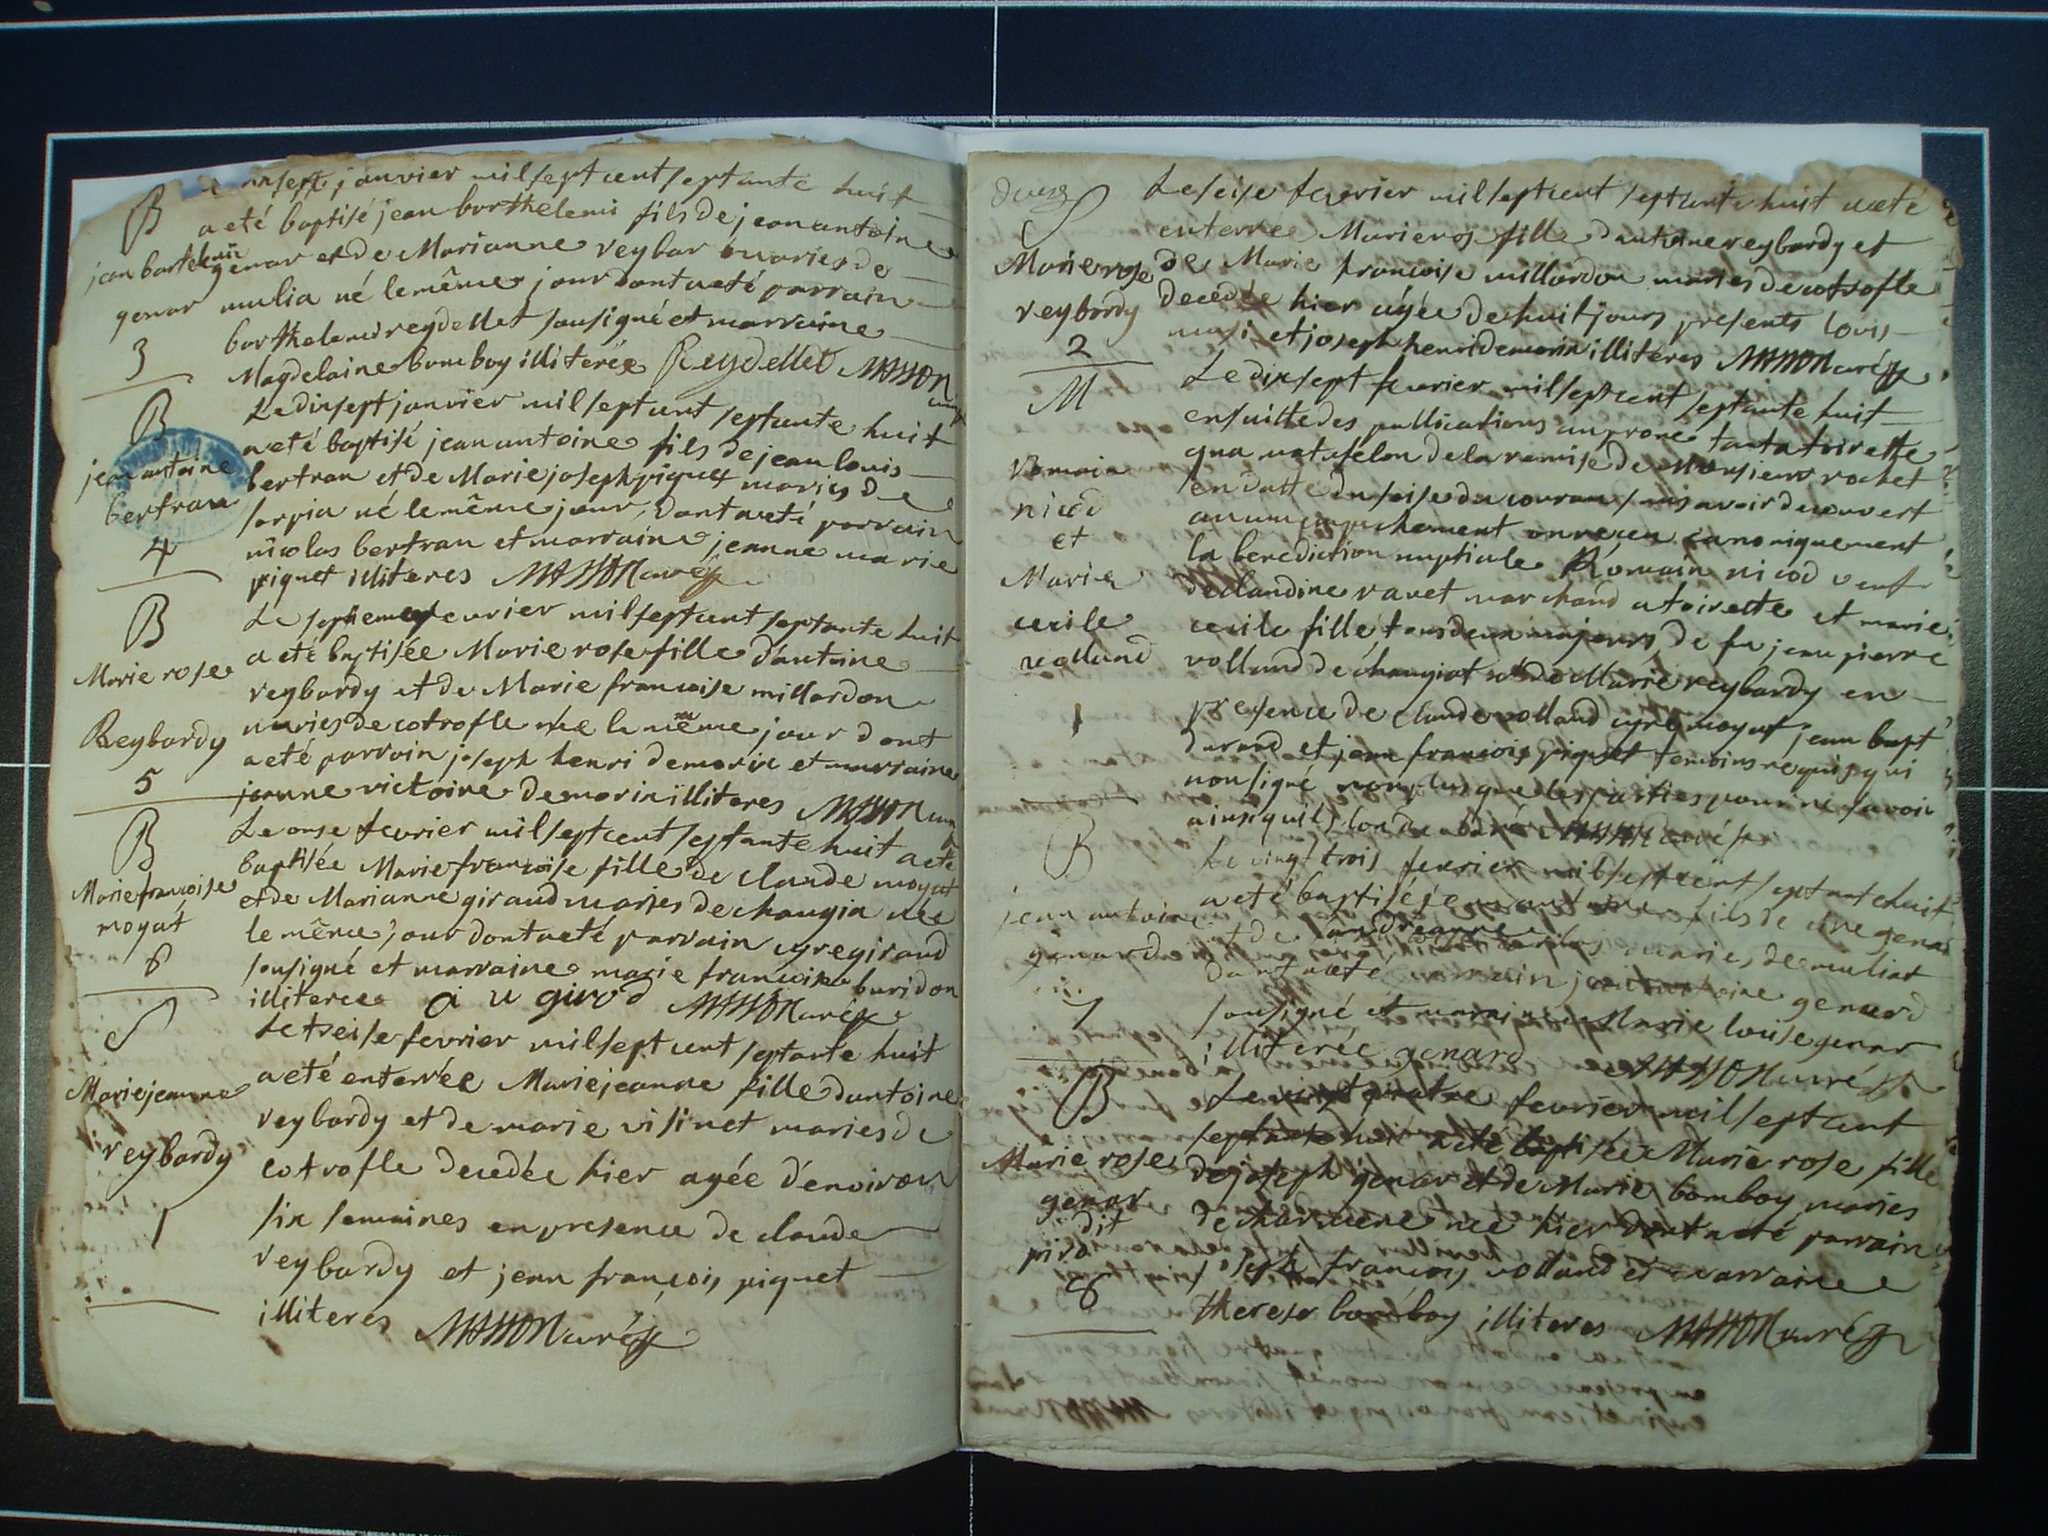 B
jean bartelemi
genar
3
janvier mil sept cent septante huit
a eté baptisé jean barthelemi fils de jean antoine
genar et de Marianne reybar maries de
mulia né le même jour dont a eté parrain
barthelemi reydellet sousigné et marraine
Magdelaine bomboy illiterée Reydellet MASSON
B
jean antoine
bertran
4
Le dixsept janvier mil sept cent septante huit
a eté baptisé jean antoine fils de jean louis
bertran et de Marie joseph piquet maries de
sarpia né le même jour, dont a eté parrain
nicolas bertran et marraine jeanne marie
piquet illiteres MASSON curé
B
Marie rose
Reybardy
5
Le septieme fevrier mil sept cent septante huit
a eté baptisée Marie rose fille dantoine
reybardy et de Marie francoise millardon
maries de cotrofle née le même jour dont
a eté parrain joseph henri demorin et marraine
jeanne victoire demorin illiteres MASSON
B
Marie francoise
moyat
6
Le onse fevrier mil sept cent septante huit a eté
baptisée Marie francoise fille de claude moyat
et de Marianne giraud maries de changia née
le même jour dont a eté parrain cyre giraud
sousigné et marraine marie francoise buridon
illiteree MASSON curé
S
Marie jeanne
reybardy
1
Le treise fevrier mil sept cent septante huit
a eté enterrée Marie jeanne fille dantoine
reybardy et de marie visinet maries de
cotrofle decedée hier agée d'environ
six semaines en presence de claude
reybardy et jean françois piquet
illiteres MASSON curé
S
Marie rose
reybardy
2
Le seise fevrier mil sept cent septante huit a eté
enterrée Marie ros fille dantoine reybardy et
de Marie francoise millardon maries de cotrofle
decedée hier agée de huit jours presents louis
et joseph henri demorin illiteres MASSON curé
M
romain
nicod
et
Marie
cecile
volland
1
Le dixsept fevrier mil sept cent septante huit
ensuitte des publications au prone tant a toirette
qua vatufelon de la remise de Monsieur rochet
en datte du seise du courant sans avoir decouvert
aucun empechement on receu canoniquement
la benediction nuptiale Romain nicod veuf
de claudine ravet marchand a toirette et marie
cecile fille tous deux majeurs, de fu jean pierre
volland de changiat et de Marie reybardy en
presence de claude volland cyre moyat jean bapt
durand et jean françois piquet temoins requis qui
non signé non plus que les parties pour ne savoir
ainsi quils MASSON curé
B
jean antoine
genard
7
Le vingt trois fevrier mil sept cent septante huit
a eté baptisé jean antoine fils de
maries de muliat
dont a eté parrain jean antoine genard
sousigné et maraine Marie louise genar
illiterée genard MASSON curé
B
Marie rose
genar
dit
8
Le vingt quatre fevrier mil sept cent
septante huit a eté baptisée Marie rose fille
de joseph genar et de Marie bomboy maries
de née hier dont a eté parrain
joseph francois volland et marraine
therese bomboy illiteres MASSON curé